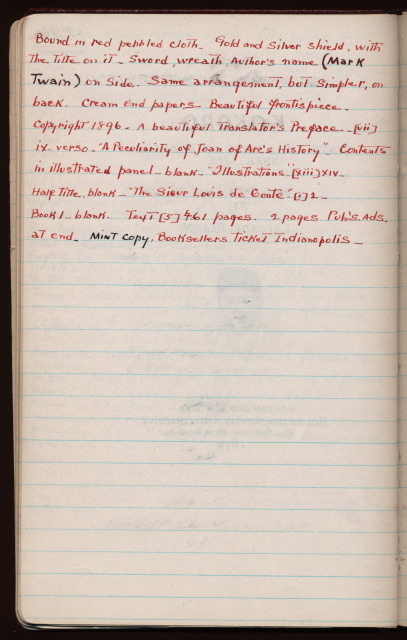 Bound in red pebbled cloth. Gold and Silver Shield, with
The Title on it - Sword, wreath Author's name (Mark
Twain) on Side. Same arrangement, but Simpler, on
back. Cream End papers - Beautiful frontispiece.
Copyright 1896 - A beautiful Translator's Preface - [vii]
ix-verso. "A Peculiarity of Joan of Arc's History" - Contents
in illustrated panel - blank. "Illustrations" [xiii] xiv -
Half Title, blank - "The Sieur Louis de Conte" [1] 2 -
Book I - blank. Text [5] 461 pages. 2 pages Pub's. Ads.
at end. Mint copy, Booksellers Ticket Indianapolis -